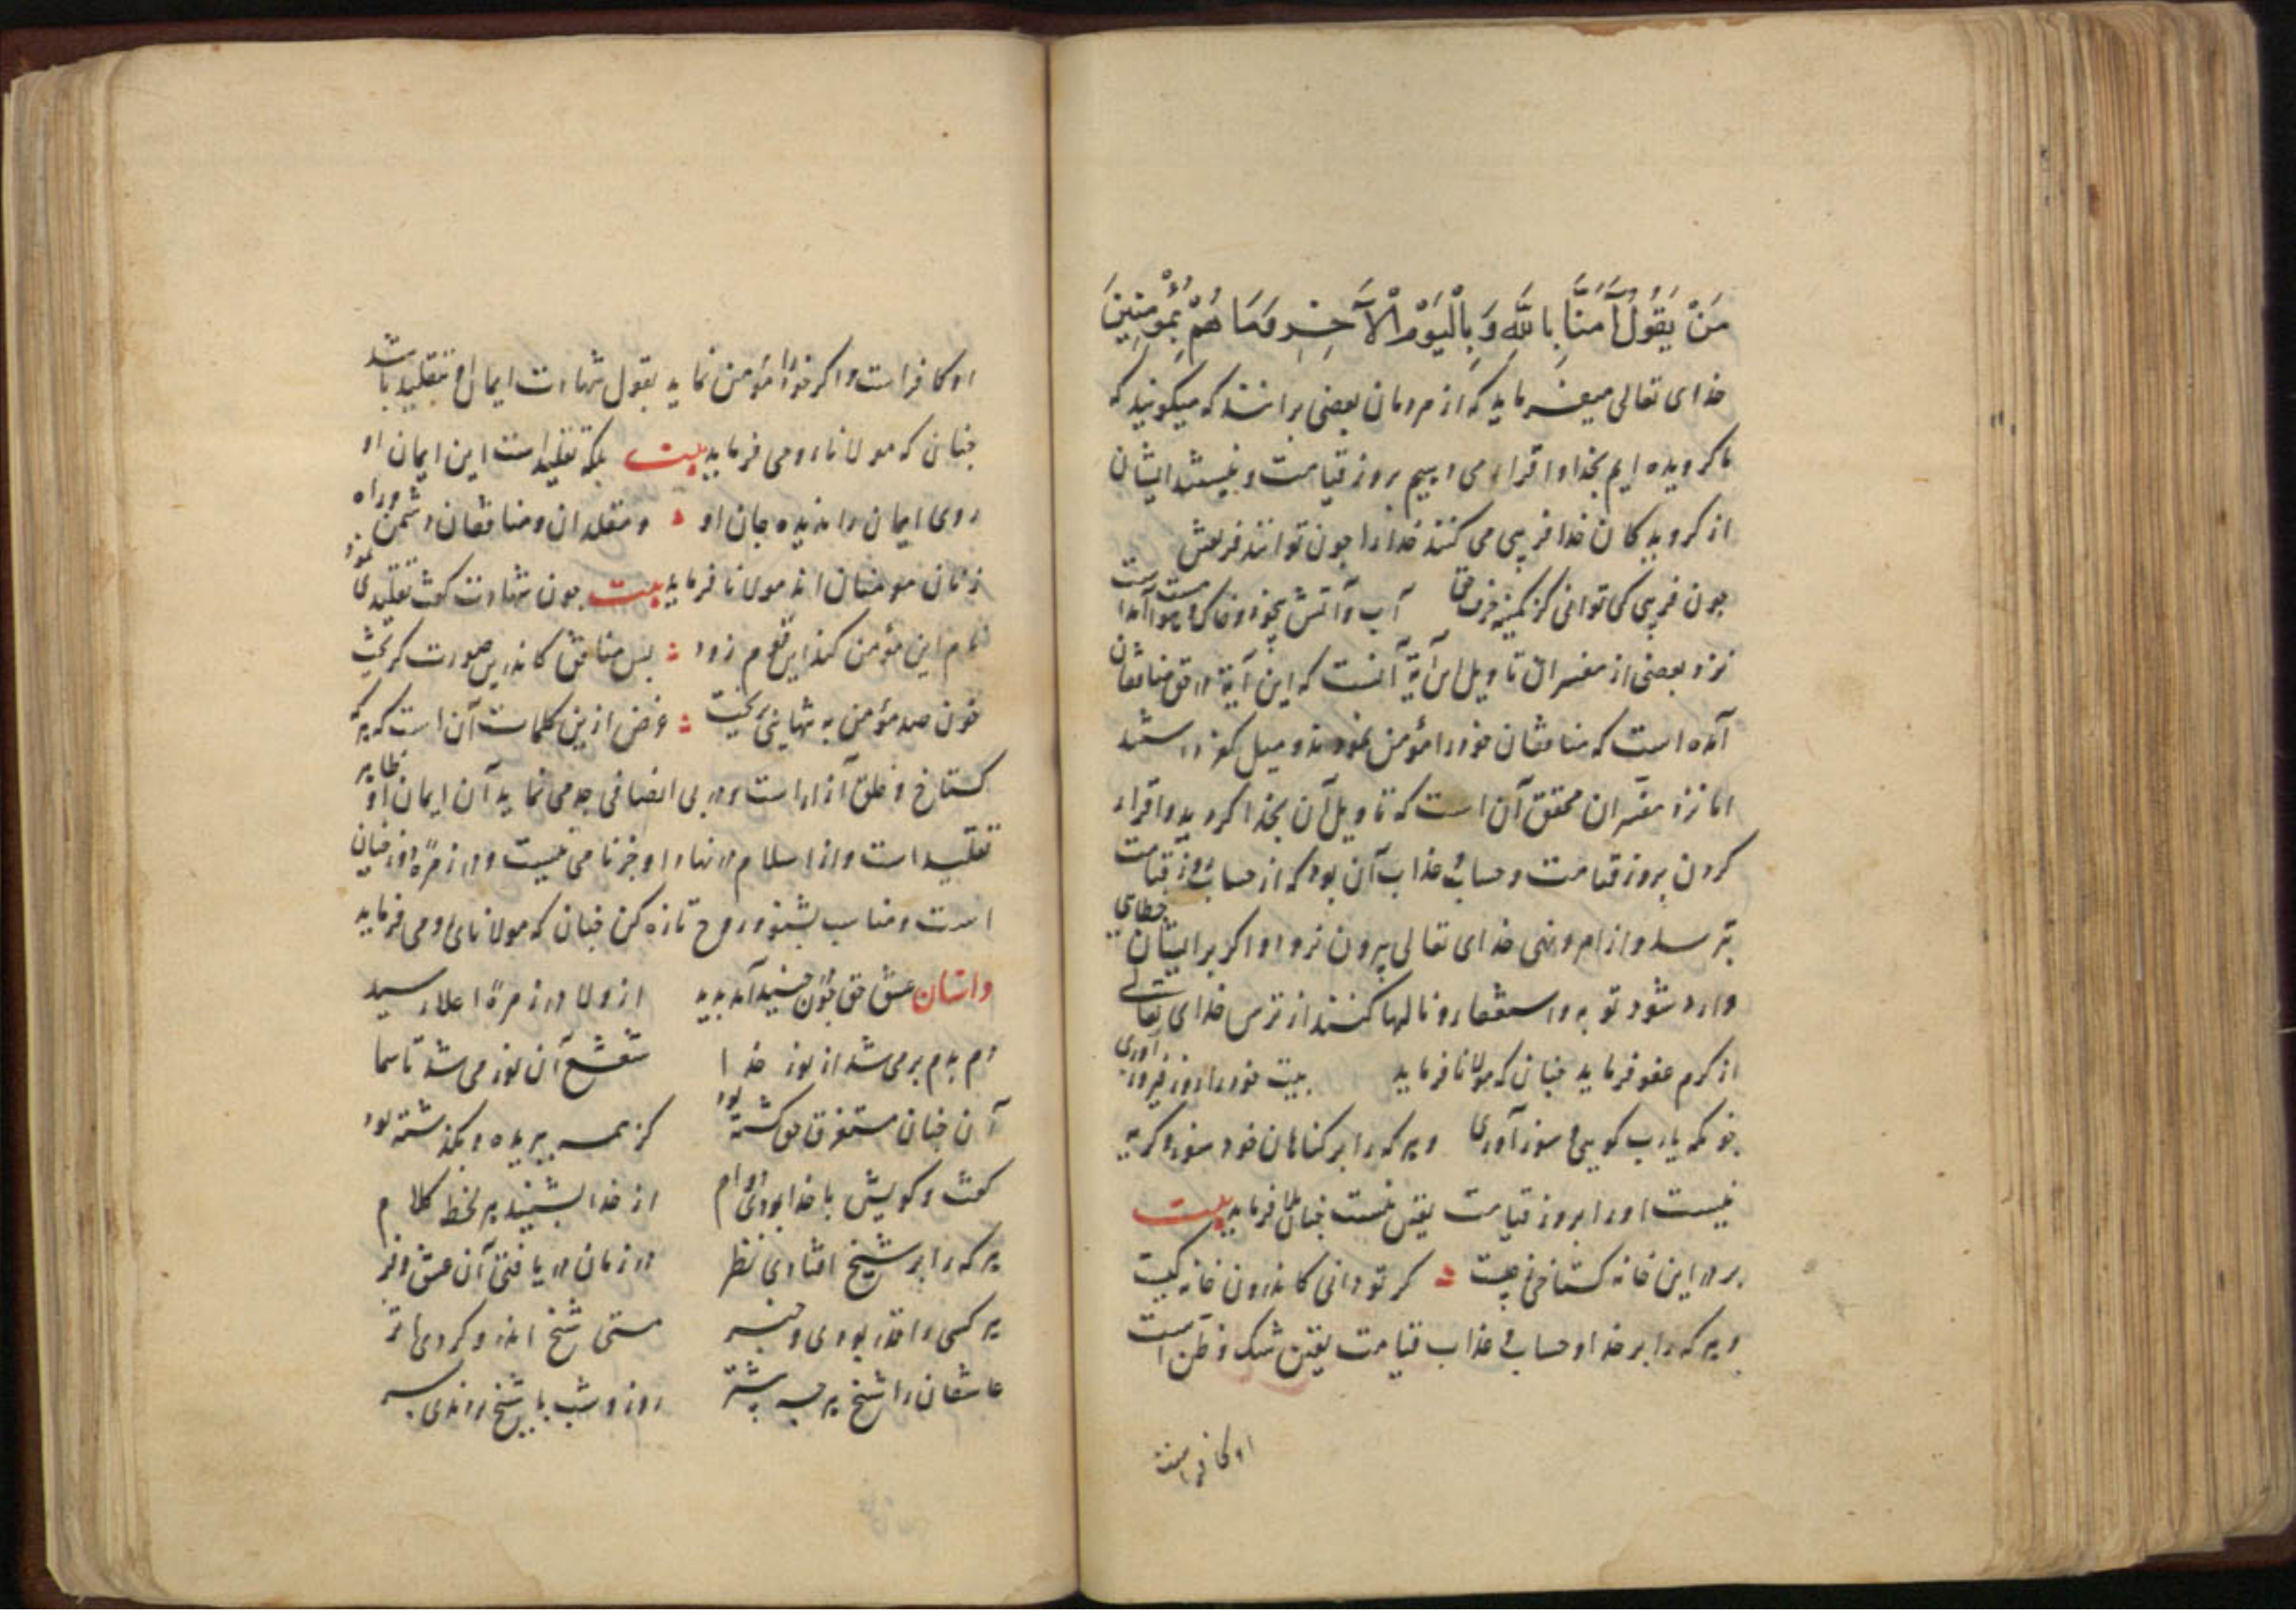 مَنْ يَقُولُ آمَنَّا بِاللَّهِ وَبِالْيَوْمِ الْآخِرِ وَمَا هُمْ بِمُؤْمِنِينَ
خدای تعالی میفرماید که از مردمان بعضی برانند که میکویند که
ما کرویده ایم بخدا و اقرار می‌دهیم بروز قیامت و نیستند ایشان
از کرویدکان خدا فریبی می کنند خدا را چون توانند فریفتش
چون فریبی کی توانی کز کمینه آب و آتش
نزد بعضی از مفسران تاویل این آیة آنست که این آیة در حق منافقان
آمده است که منافقان خود را مؤمن نمودند و میل کفر داشتند
اما نزد مفسران محقق آن است که تاویل آن بخدا کروید و اقرار
کردن بروز قیامت و حساب و عذاب آن بود که از حساب روز قیامت
بترسد و از امر و نهی خدای تعالی بیرون نرود و اکر بر ایشان خطایی
وارد شود توبه و استغفار و نالها کنند از ترس خدای تعالی
از کرم عفو فرماید چنان که مولانا فرماید بیت خود را
یارب کویی و سوز آوری و هر که را بر کناهان خود سوز و کریه
نیست او را بروز قیامت یقین نیست چنان فرماید بیت
بر در این خانه کستاخی ز چیست کر تو دانی کاندرون خانه کیست
و هر که را بر خدا و حساب و عذاب قیامت یقین شک و ظن است
او کافر است
او کافر است و اکر خود را مؤمن نماید بقول شهادت ایمان او تقلید باشد
چنان که مولانا رومی فرماید بیت بلکه تقلیدست این ایمان او
روی ایمان را ندیده جان او و مقلدان و منافقان دشمن و راه
زنان مومنان اند مولانا فرماید بیت چون شهادت کفت تقلیدی
این مؤمن زود پس منافق کاندرین صورت کریخت
خون صد مؤمن به پنهانی بریخت غرض ازین کلمات آن است که هر که
کستاخ و خلق آزار است و در بی انصافی جد می نماید آن ایمان او ظاهر
تقلید است و از اسلام در نهاد او جز نامی نیست و در زمرهٔ دوزخیان
است و مناسب بشنو و روح تازه کن چنان که مولانای رومی فرماید
داستان عشق حق چون جنید آمد بدید از ولا در زمرهٔ اعلا رسید
دم بدم بر می شد از نور خدا شعشع آن نور می شد تا سما
آن چنان مستغرق هو کشته بود کز همه ببریده و بکذشته بود
کفت و کویش با خدا بودی دوام از خدا بشنید هر لحظه کلام
هر که را بر شیخ افتادی نظر در زمان دریافتی آن عشق و فر
هر کسی را قدر بودی و خبر مستی شیخ اندرو کردی اثر
عاشقان را شیخ روز و شب با شیخ